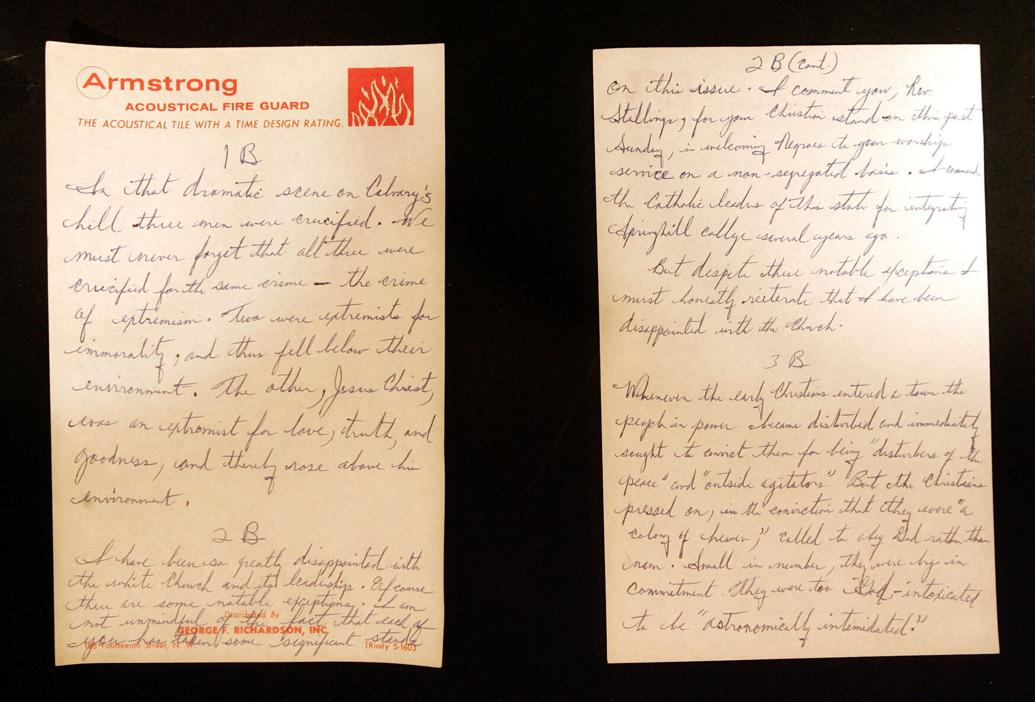 Armstrong
ACOUSTICAL FIRE GUARD
THE ACOUSTICAL TILE WITH A TIME DESIGN RATING.
1 B
In that dramatic scene on Calvary's
hill three men were crucified. We
must never forget that all three were
crucified for the same crime — the crime
of extremism. Two were extremists for
immorality, and thus fell below their
environment. The other, Jesus Christ,
was an extremist for love, truth, and
goodness, and thereby rose above his
environment.
2 B
I have been so greatly disappointed with
the white church and its leadership. Of course
there are some notable exceptions. I am
not unmindful of the fact that each of
you has taken some significant stands
Distributed By
GEORGE F. RICHARDSON, INC.
Fourteenth Street, N. W.
TRinity 5-1603
2 B (cont.)
on this issue. I comment you, Rev.
Stallings, for your Christian stand on this past
Sunday, in welcoming Negroes to your worship
service on a non-segregated basis. I
the Catholic leaders of this state for integrating
Springhill college several years ago.
But despite these notable exceptions I
must honestly reiterate that I have been
disappointed with the church.
3 B
Whenever the early Christians entered a town the
people in power became disturbed and immediately
sought to convict them for being "disturbers of the
peace" and "outside agitators." But the Christians
pressed on, in the conviction that they were "a
colony of heaven," called to obey God rather than
man. Small in number, they were big in
commitment. They were too God-intoxicated
to be "astronomically intimidated."